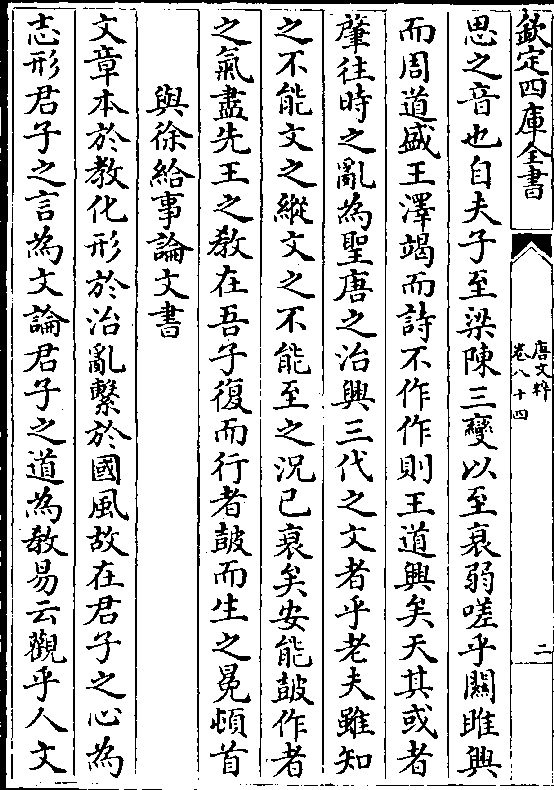 欽定四庫全書
唐文粹
卷八十四
二
思之音也自夫子至梁陳三變以至衰弱嗟乎關雎興
而周道盛王澤竭而詩不作作則王道興矣天其或者
肇往時之亂為聖唐之治興三代之文者乎老夫雖知
之不能文之縱文之不能至之況已衰矣安能鼓作者
之氣盡先王之教在吾子復而行者鼓而生之冕頓首
與徐給事論文書
文章本於教化形於治亂繫於國風故在君子之心為
志形君子之言為文論君子之道為教易云觀乎人文